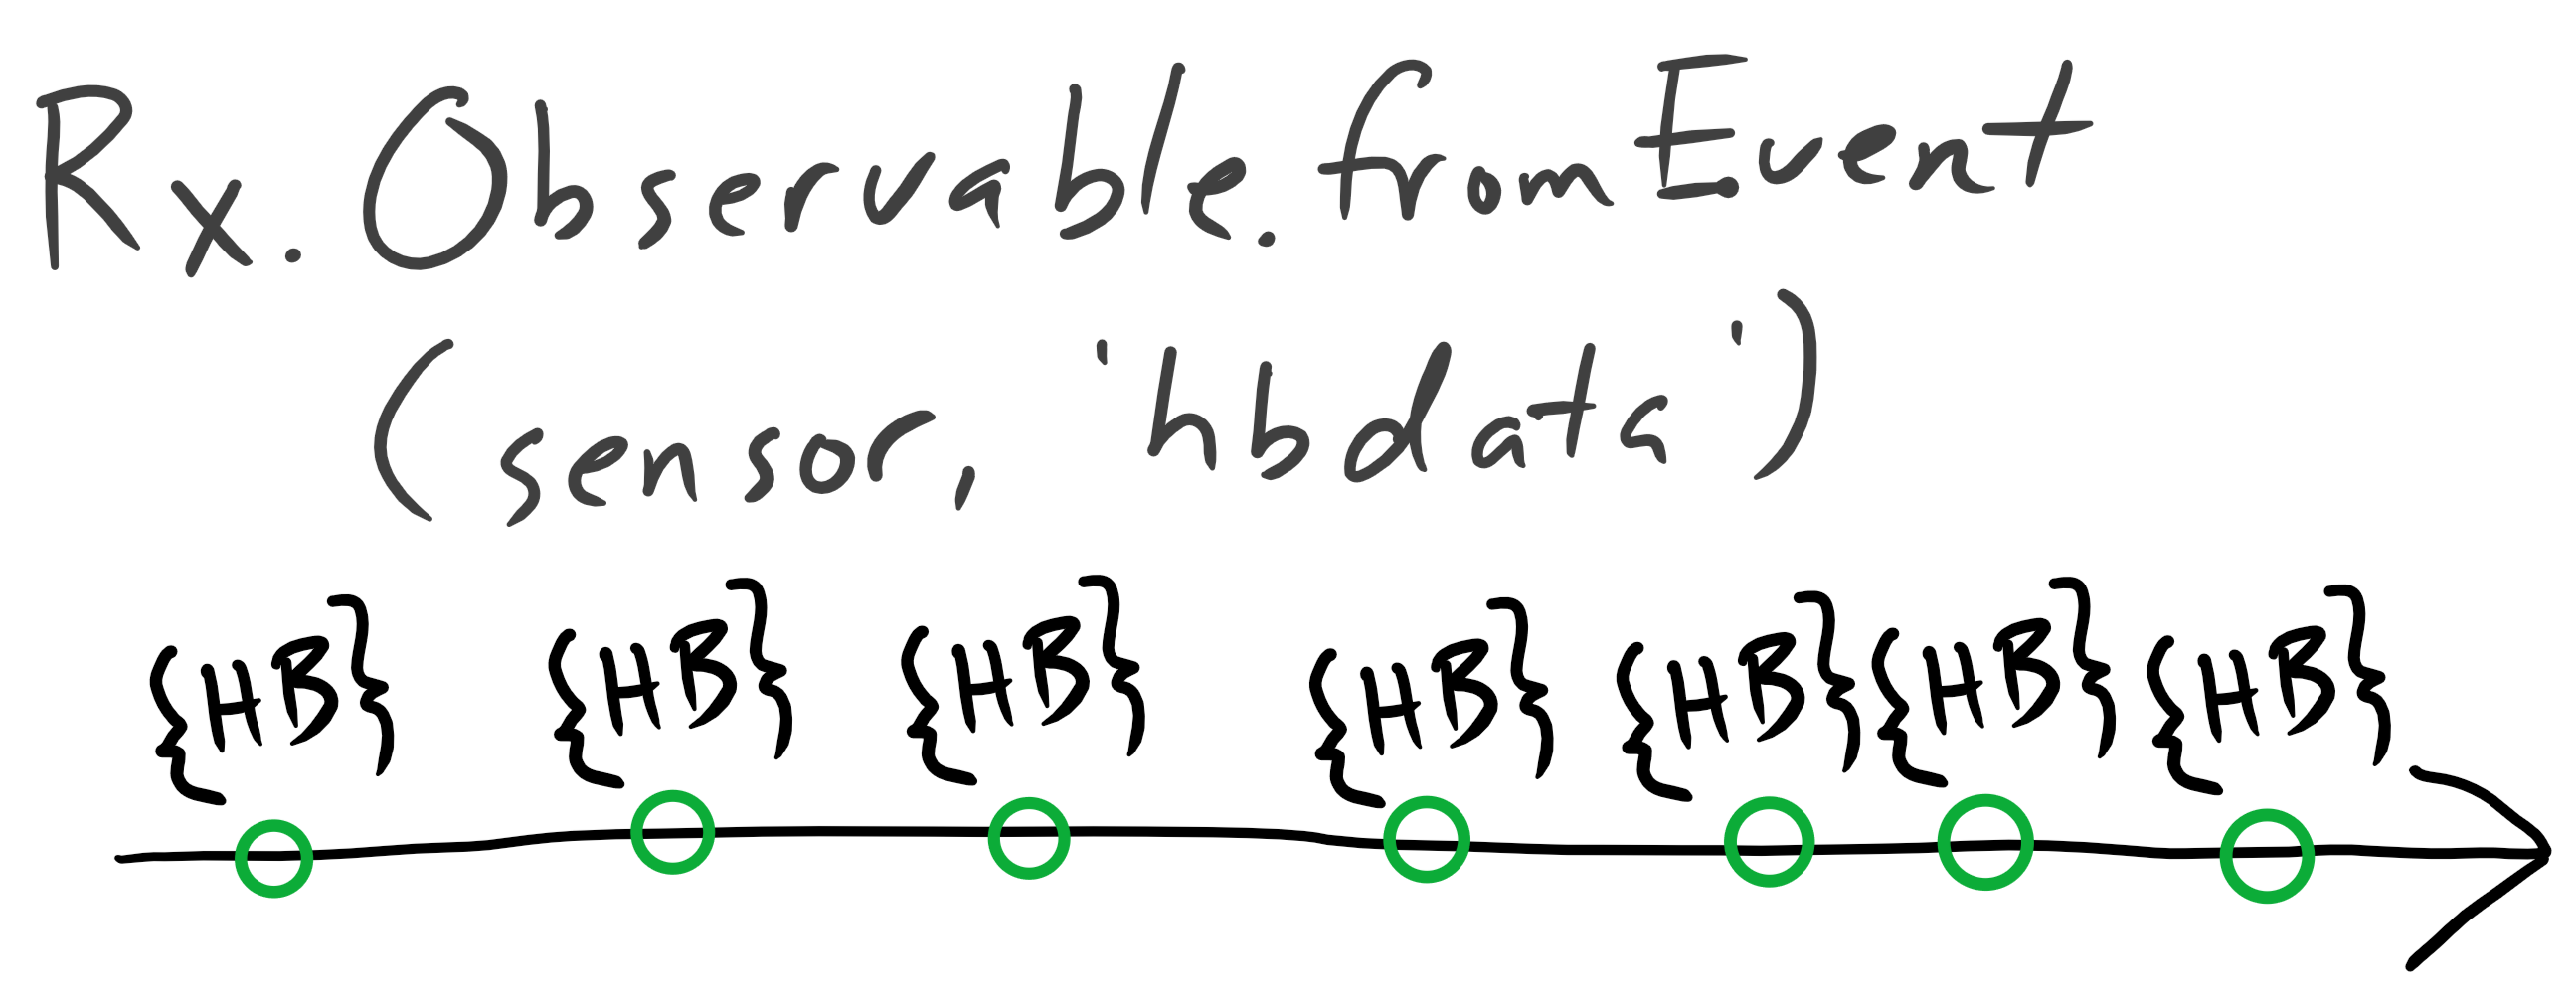 Rx. Observable. fromEvent
(sensor, 'hbdata')
{HB} {HB} {HB} {HB} {HB} {HB} {HB}